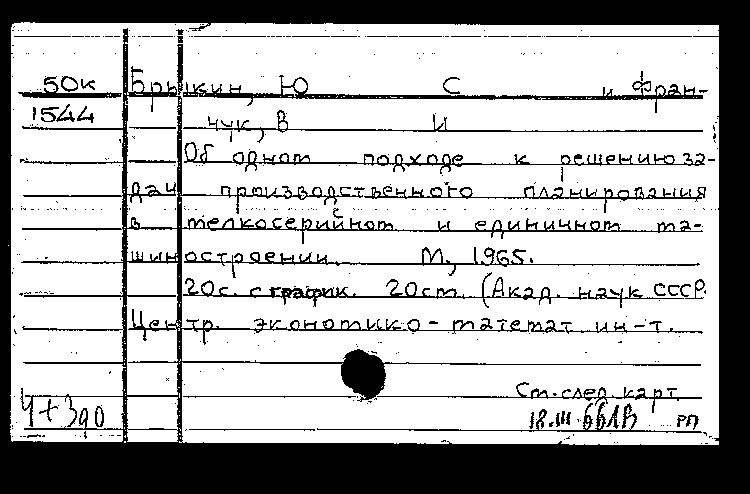 50к Брыкин, Ю С и Фран-
1544 чук, В И
Об одном подходе к решению за-
дач производственного планирования
в мелкосерийном и единичном ма-
шиностроении. М., 1965.
20с. с график. 20см. (Акад. наук СССР.
Центр. экономико-математ ин-т.
См. след. карт.
18.III.66 РП